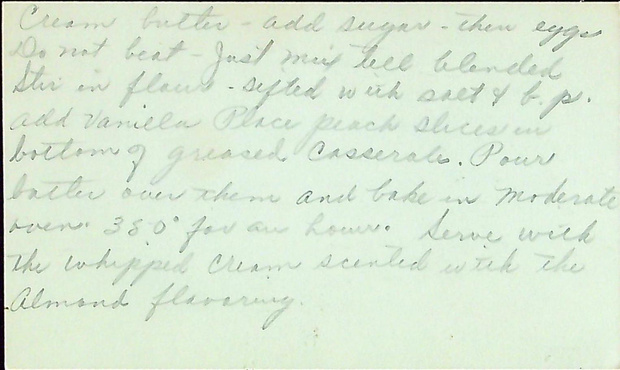 Cream butter - add sugar - then eggs
Do not beat - Just mix till blended
Stir in flour - sifted with salt & b.p.
add Vanilla Place peach slices in
bottom of greased Casserole. Pour
batter over them and bake in moderate
oven. 350° for an hour. Serve with
the whipped cream scented with the
Almond flavoring.